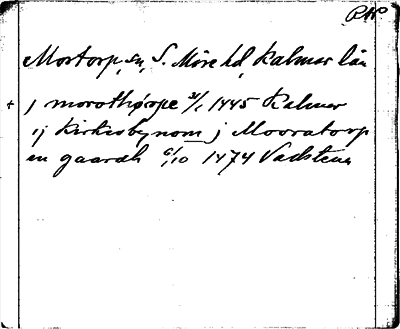 RAP
Mortorp, sn, S. Möre hd, Kalmar län
+ j morothørpe 31/1 1445 Kalmar
ij Kirkiobynom j Mooratorp
en gaardh 6/10 1474 Vadstena